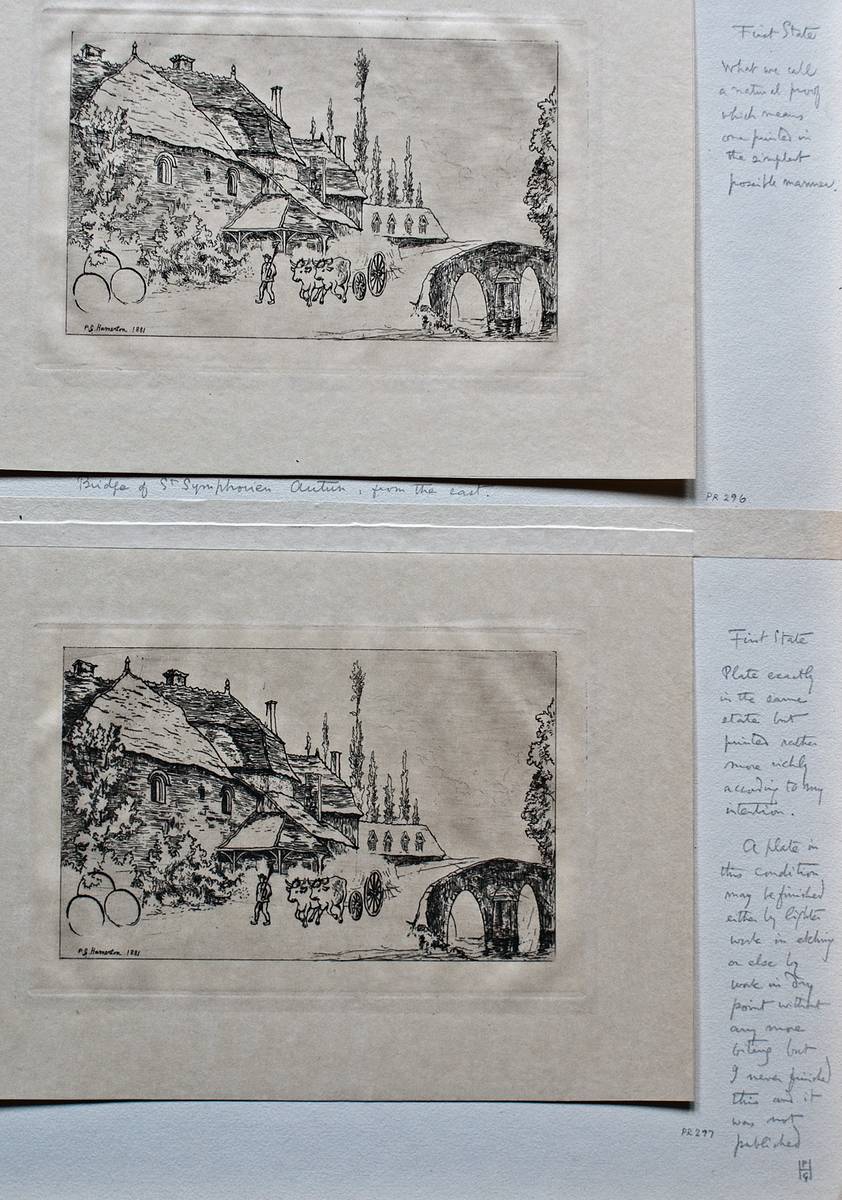 First State
What we call
a natural proof
which means
one printed in
the simplest
possible manner.
P.G. Hamerton 1881
Bridge of St Symphorien Autun, from the east.
PR 296
First State
Plate exactly
in the same
state but
printed rather
more richly
according to my
intention.
A plate in
this condition
may be finished
either by lighter
work in etching
or else by
work in dry
point without
any more
biting but
I never finished
this and it
was not
published
P.G. Hamerton 1881
PR 297
PGH